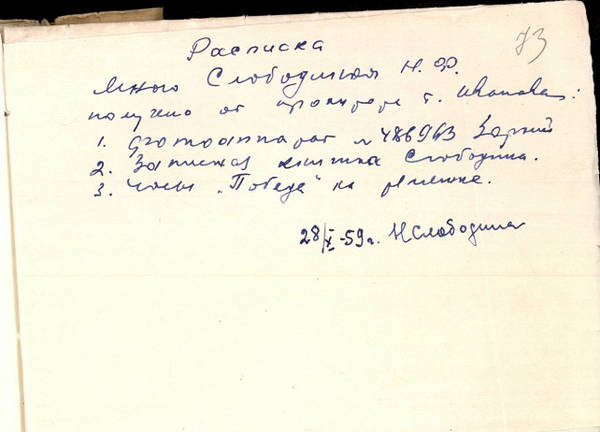 73
Расписка
Мною Слободиной Н.Ф.
получено от прокурора т. Иванова:
1. фотоаппарат № 486963 Зоркий
2. Записная книжка Слободина.
3. Часы „Победа“ на ремешке.
28/X-59 г. НСлободина